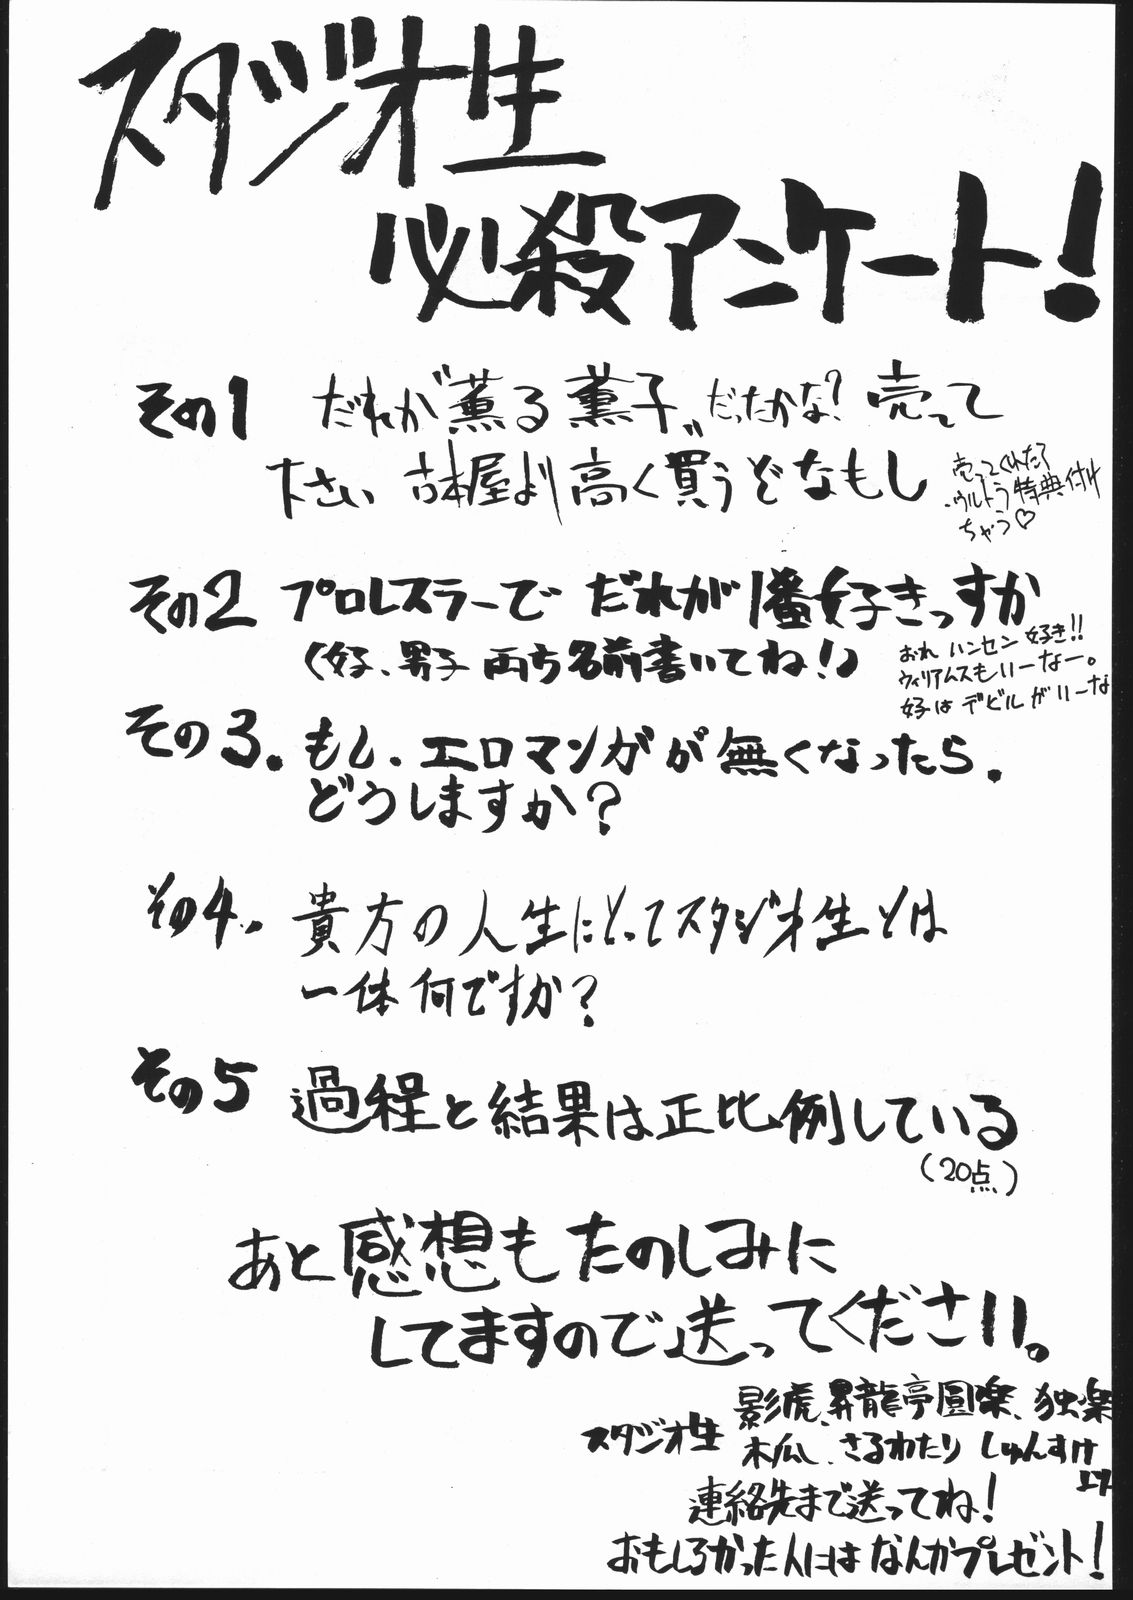 スタジオ生
必殺アンケート!
その1 だれか"薫る薫子"だったかな?売って
下さい 古本屋より高く買うぞなもし
売ってくれたら
ウルトラ特典付け
ちゃう♡
その2 プロレスラーで だれが1番好きっすか
(女子、男子 両方名前書いてね!)
おれ ハンセン 好き!!
ウィリアムスもいーなー。
女子は デビルがいーな
その3. もし、エロマンガが無くなったら、
どうしますか?
その4. 貴方の人生にとってスタジオ生とは
一体何ですか?
その5 過程と結果は正比例している
(20点)
あと感想もたのしみに
してますので送ってください。
スタジオ生 影虎、昇龍亭圓楽、独楽
木瓜、さるわたり しゅんすけ
より
連絡先まで送ってね!
おもしろかった人にはなんかプレゼント!